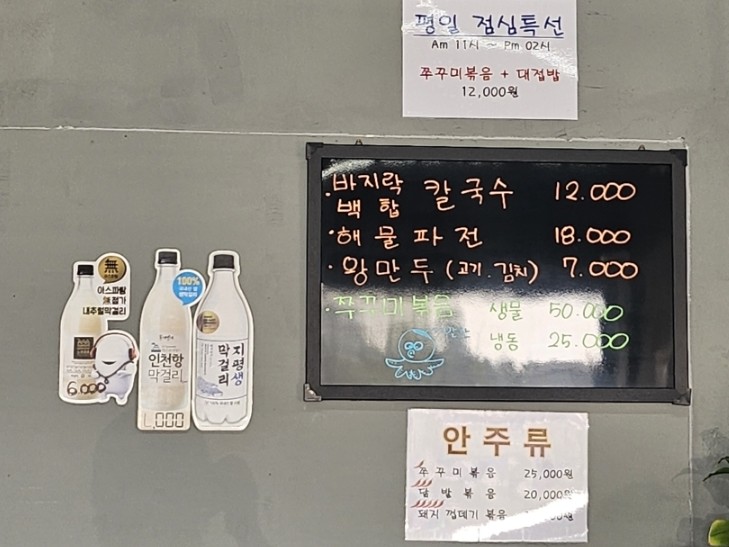 평일 점심특선
Am 11시 ~ Pm 02시
쭈꾸미볶음 + 대접밥
12,000원
·바지락 백합 칼국수 12.000
·해물파전 18.000
·왕만두 (고기.김치) 7.000
·쭈꾸미볶음 생물 50.000
냉동 25.000
無
아스파탐
無첨가
내추럴막걸리
6,000
100%
인천항
막걸리
,000
지평생
막걸리
안주류
쭈꾸미볶음 25,000원
닭발볶음 20,000원
돼지 껍데기볶음